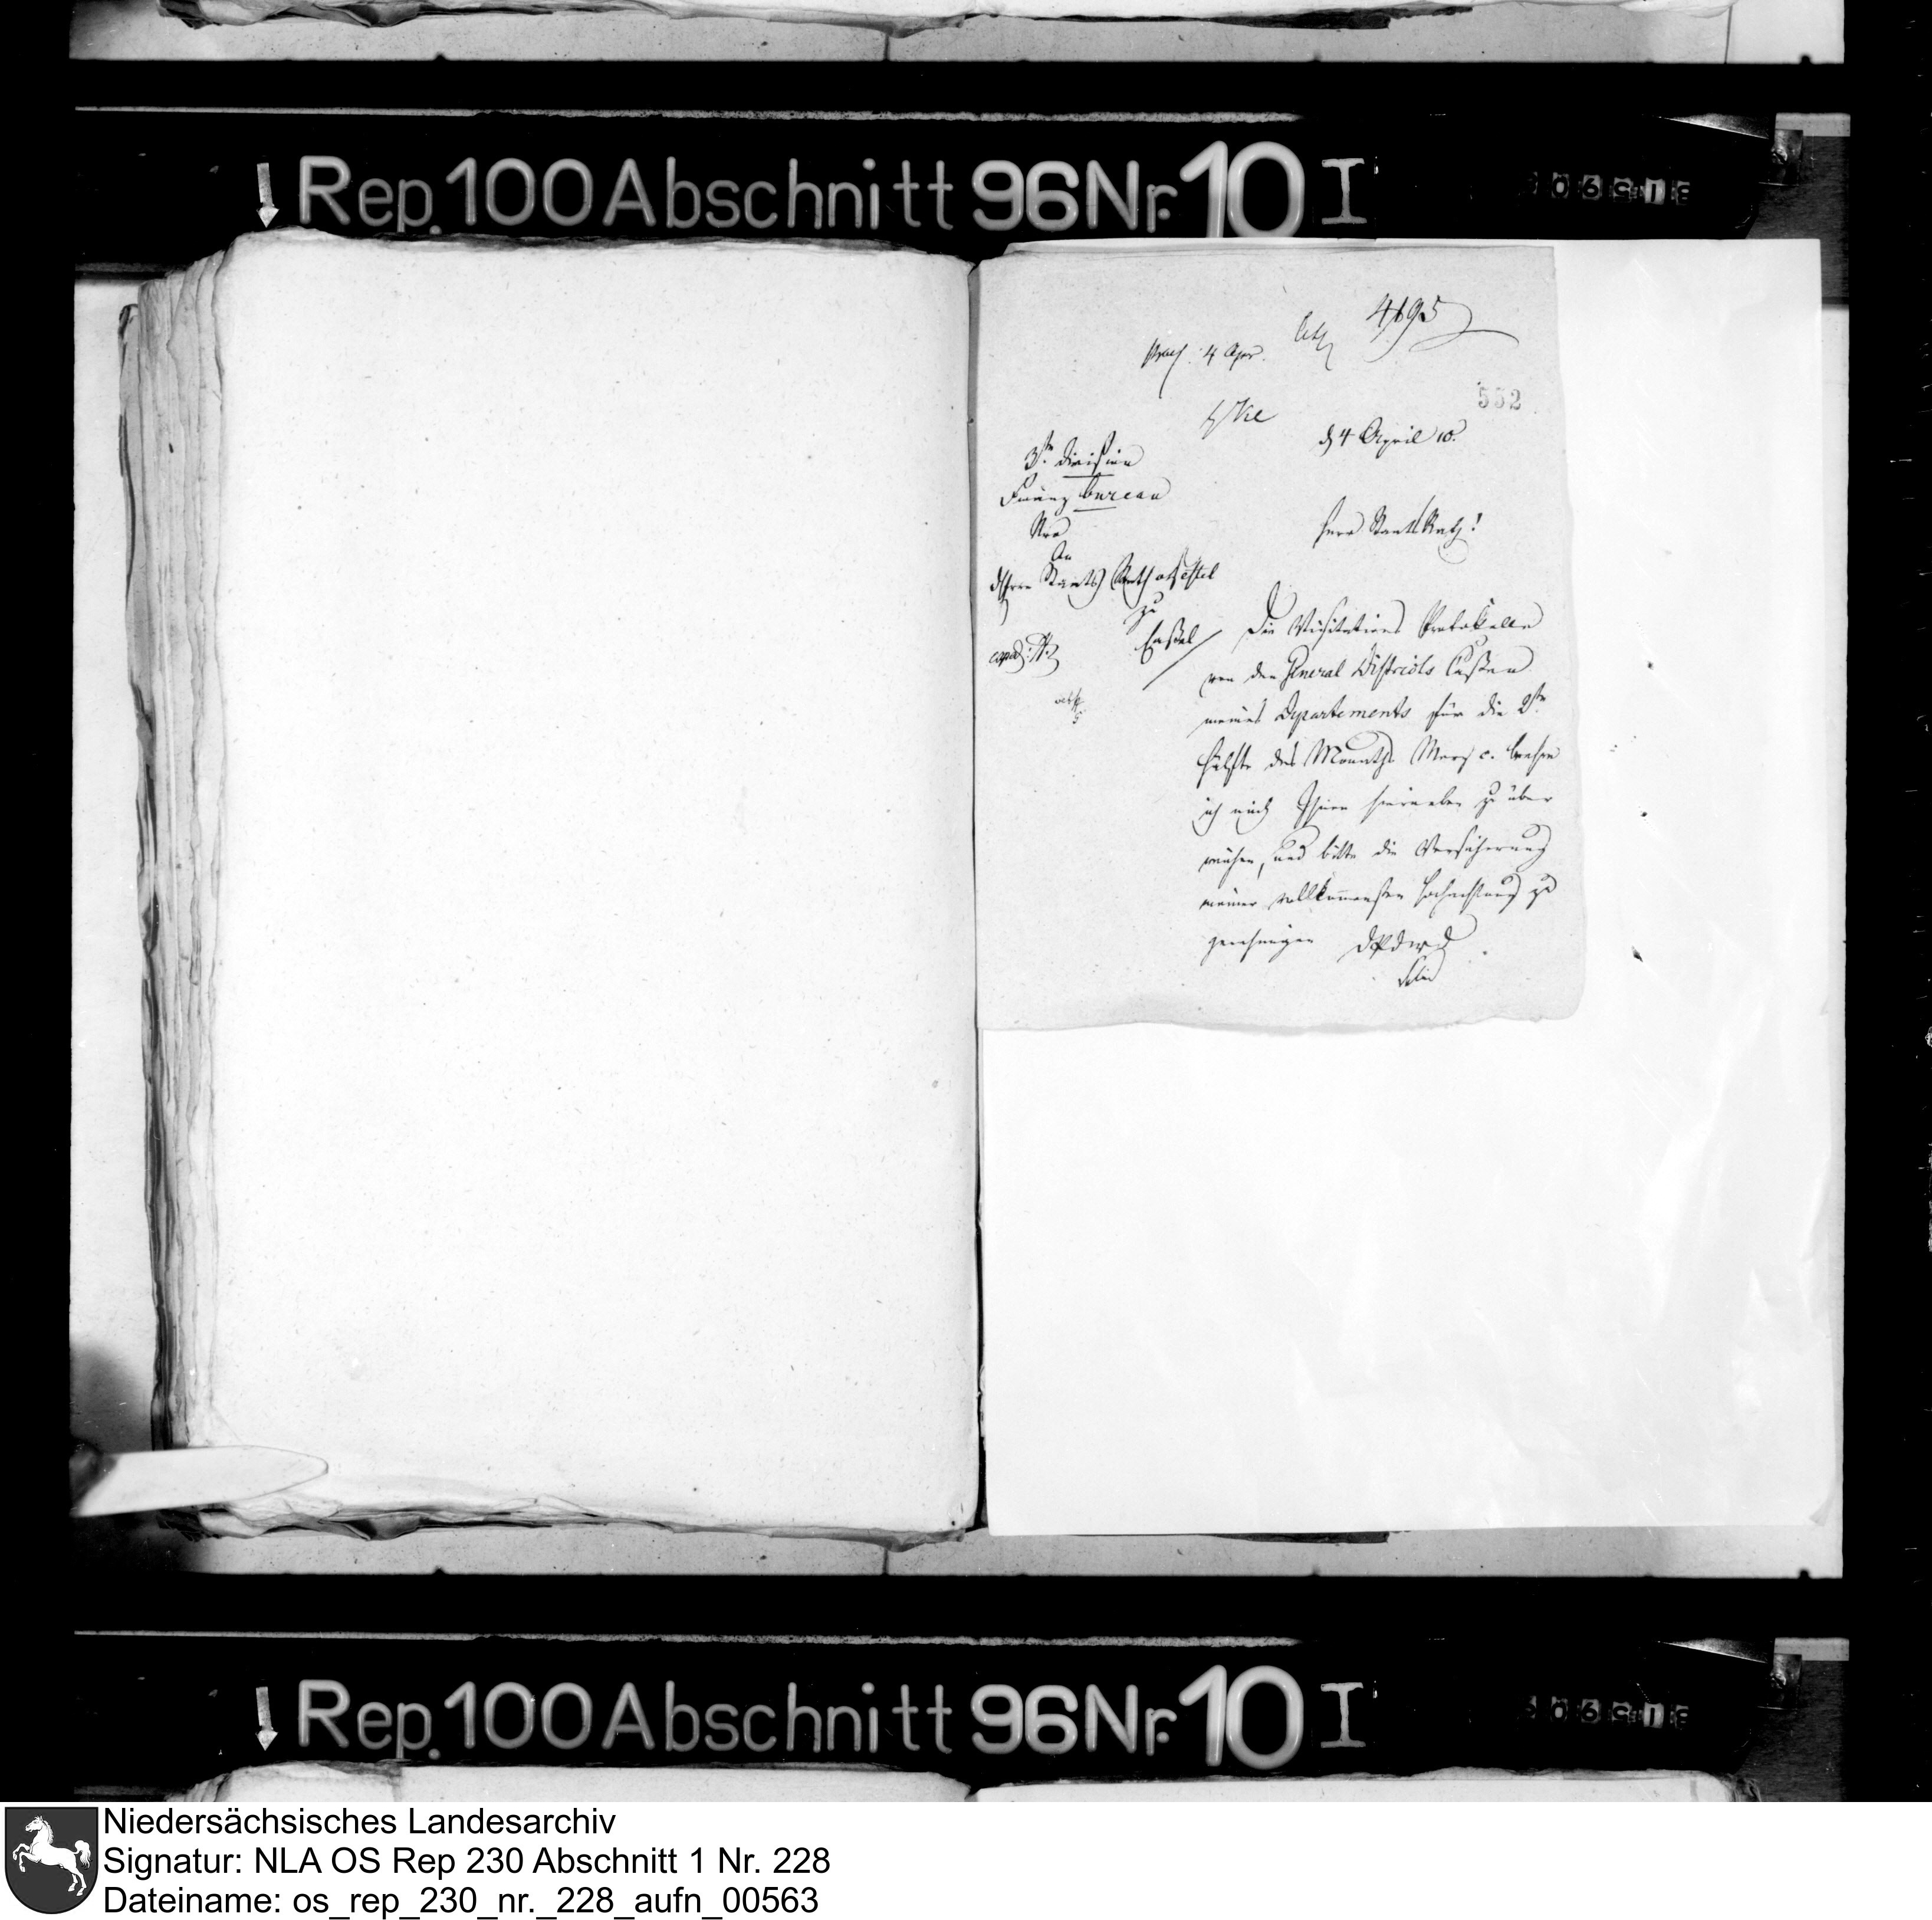 Rep. 100 Abschnitt 96 Nr. 10 I
4195
praes. 4 Apr.
552
d 4 April 10.
3te Division
Finanz bureau
Nro
An
d Herrn Staats Rath
zu
Cassel
Herr Staats Rath!
Die Visitations Protokolle
von den General Districts Cassen
meines Departements für die 2te
Hälfte des Monaths Merz c. beehre
ich mich Ihnen hieneben zu über
reichen, und bitte die Versicherung
meiner vollkommensten Hochachtung zu
genehmigen
Rep. 100 Abschnitt 96 Nr. 10 I
Niedersächsisches Landesarchiv
Signatur: NLA OS Rep 230 Abschnitt 1 Nr. 228
Dateiname: os_rep_230_nr._228_aufn_00563